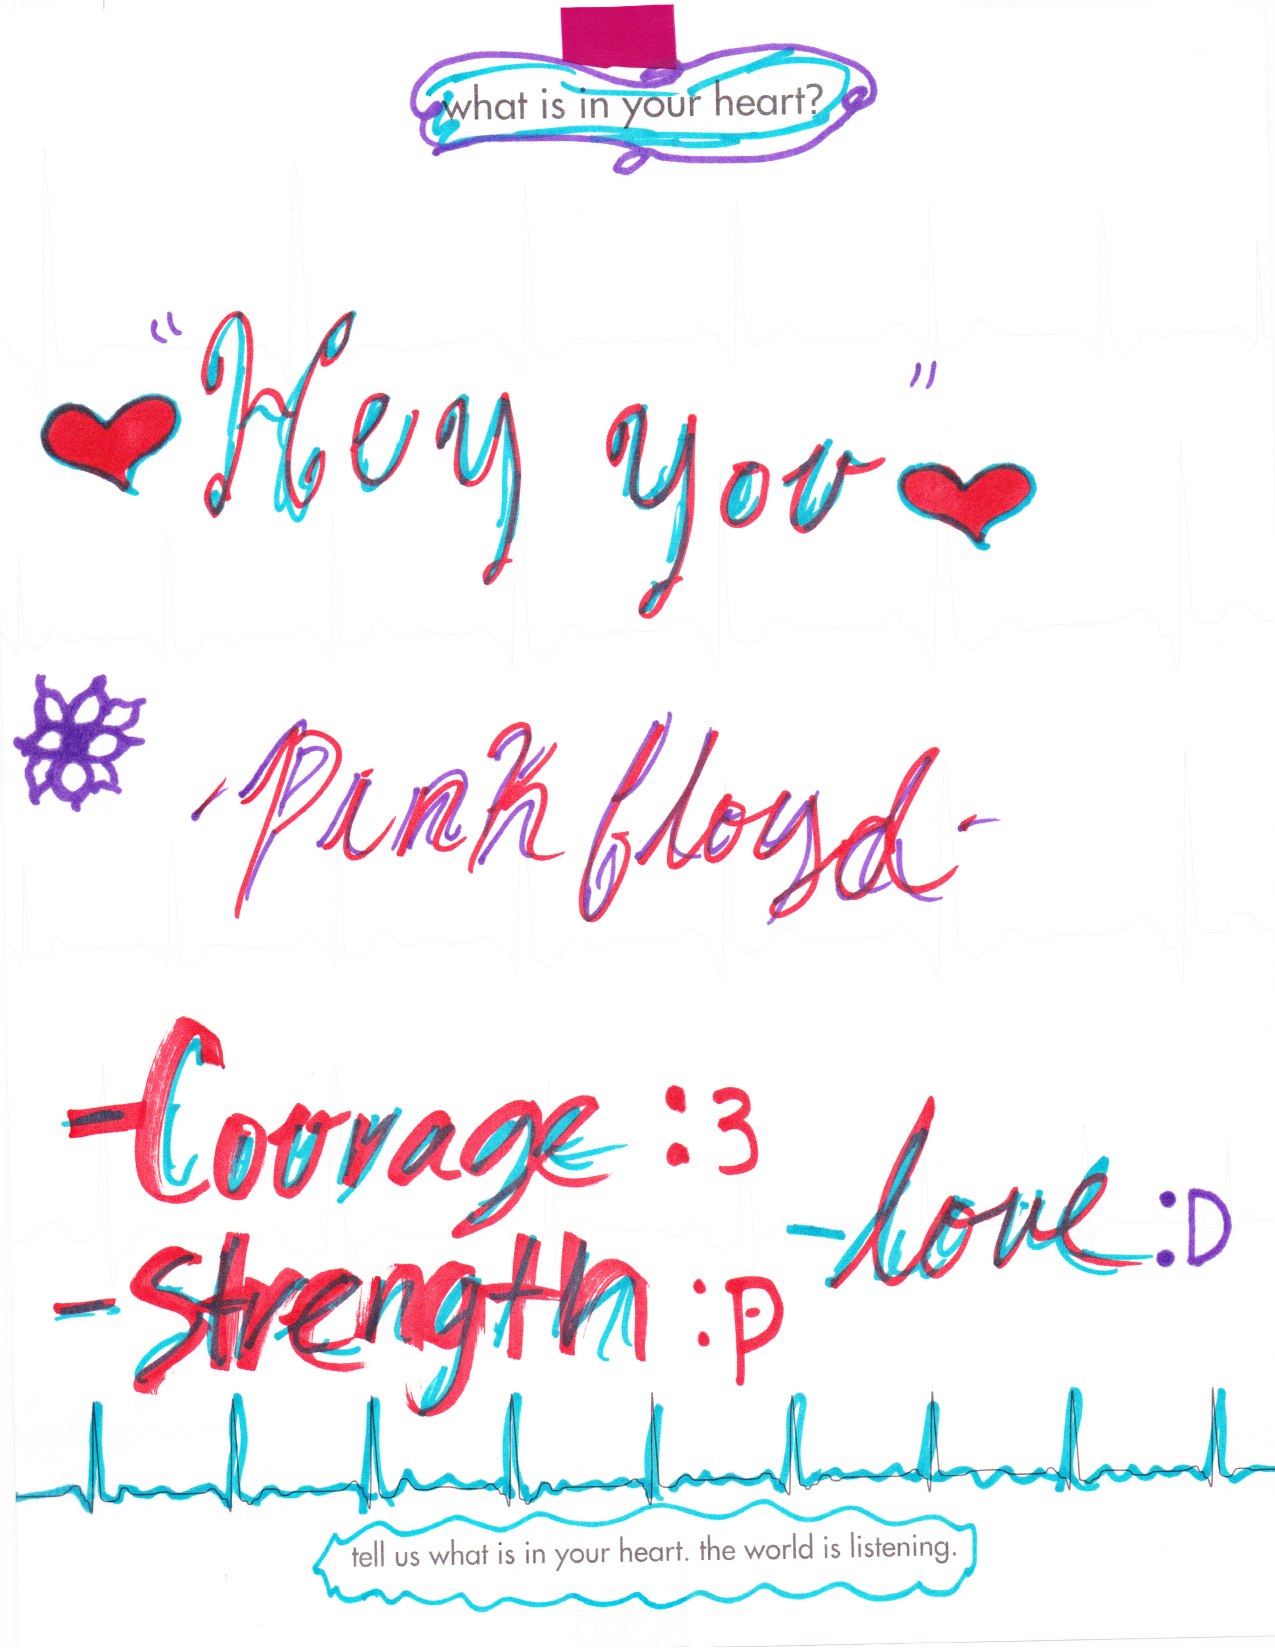 what is in your heart?
"Hey you"
-Pink floyd-
-Courage :3
-love :D
-Strength :p
tell us what is in your heart. the world is listening.